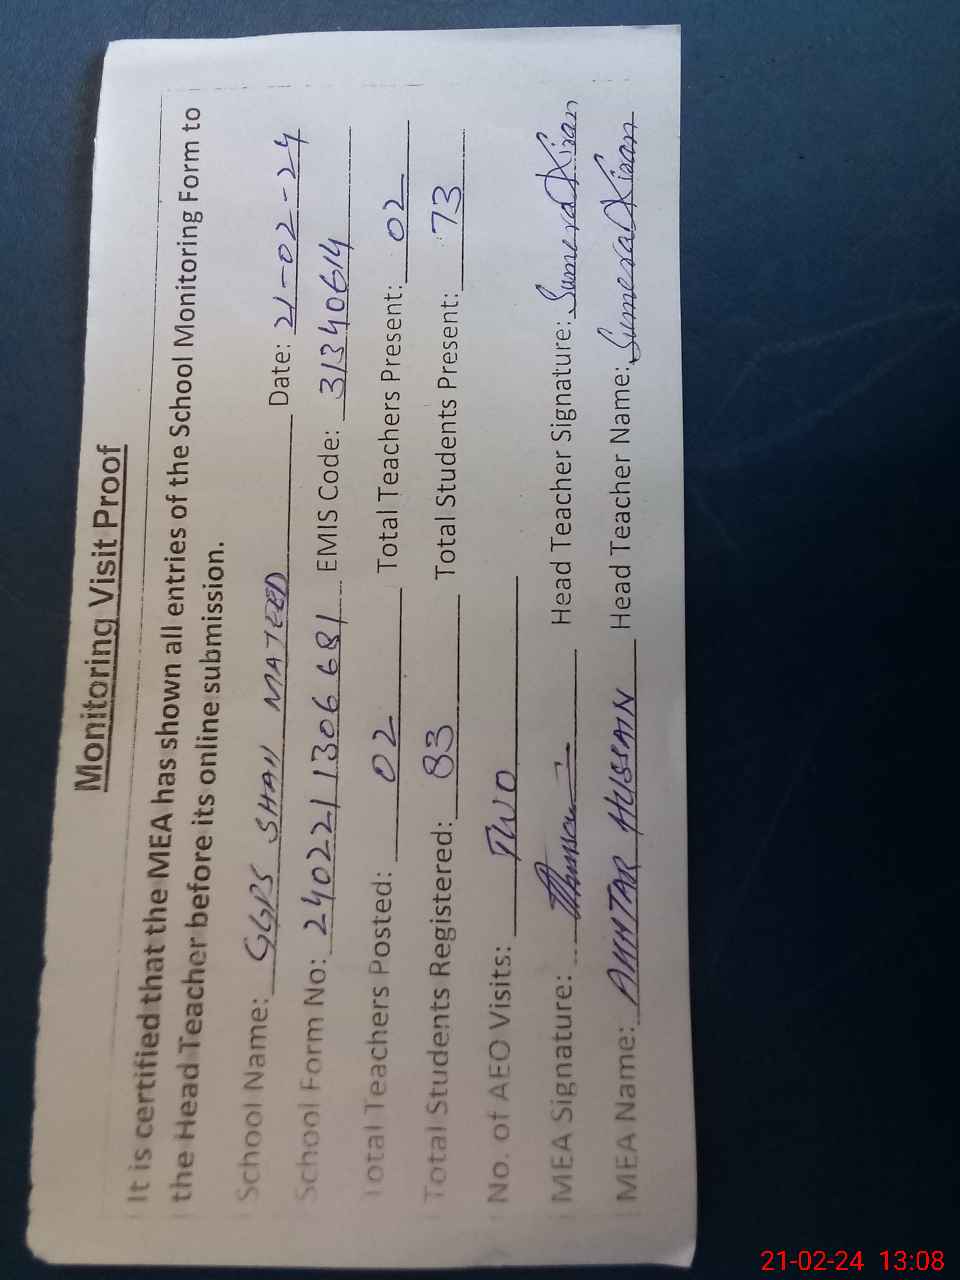 Monitoring Visit Proof
It is certified that the MEA has shown all entries of the School Monitoring Form to
the Head Teacher before its online submission.
School Name: GGPS SHAH MAJEED Date: 21-02-24
School Form No: 240221 1306 681 EMIS Code: 31340614
Total Teachers Posted: 02 Total Teachers Present: 02
Total Students Registered: 83 Total Students Present: 73
No. of AEO Visits: TWO
MEA Signature: Head Teacher Signature: Sumera Kiran
MEA Name: AKHTAR HUSSAIN Head Teacher Name: Sumera Kiran
21-02-24 13:08